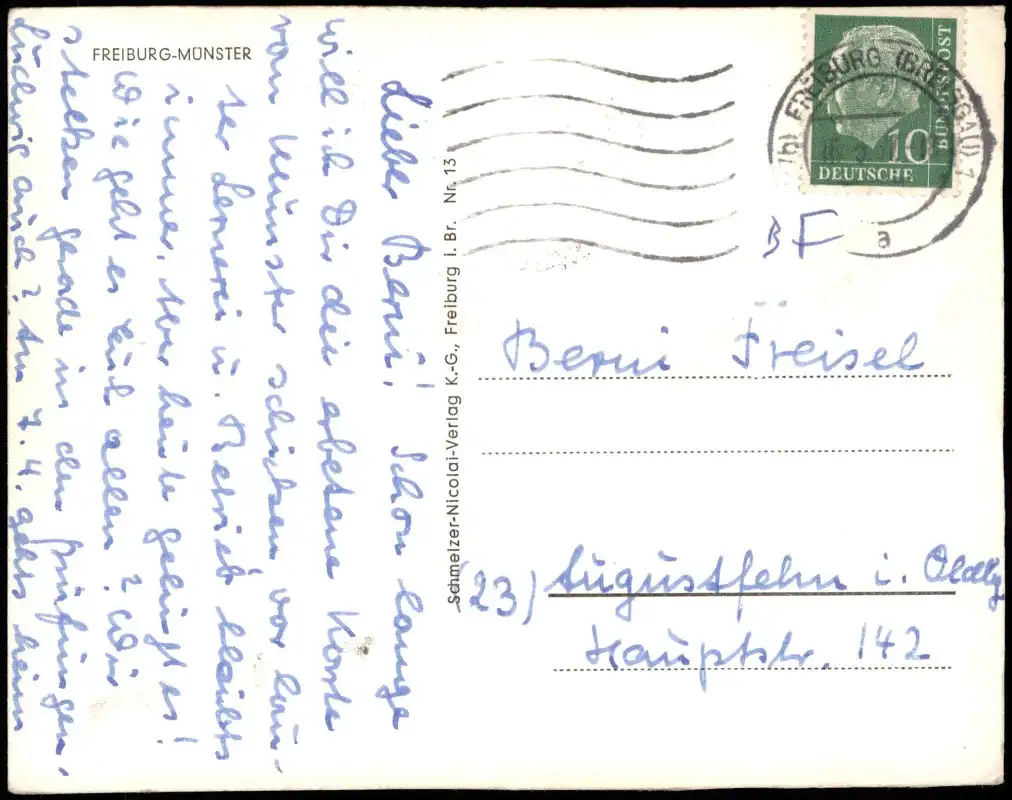 FREIBURG-MÜNSTER
Lieber Berni! Schon lange
will ich Dir die erbetene Karte
vom Münster schicken, vor lau-
ter Lernerei u. Betrieb bleibts
immer, aber heute gelingt es!
Wie geht es Euch allen? Wir
stecken gerade in den Prüfungen.
Ludwig auch? Am 7. 4. gehts heim
Schmelzer-Nicolai-Verlag K.-G., Freiburg i. Br. Nr. 13
(b) FREIBURG (BREISGAU) 1
a
BUNDESPOST
10
DEUTSCHE
BF
Berni Freisel
(23) Augustfehn i. Oldbg
Hauptstr. 142